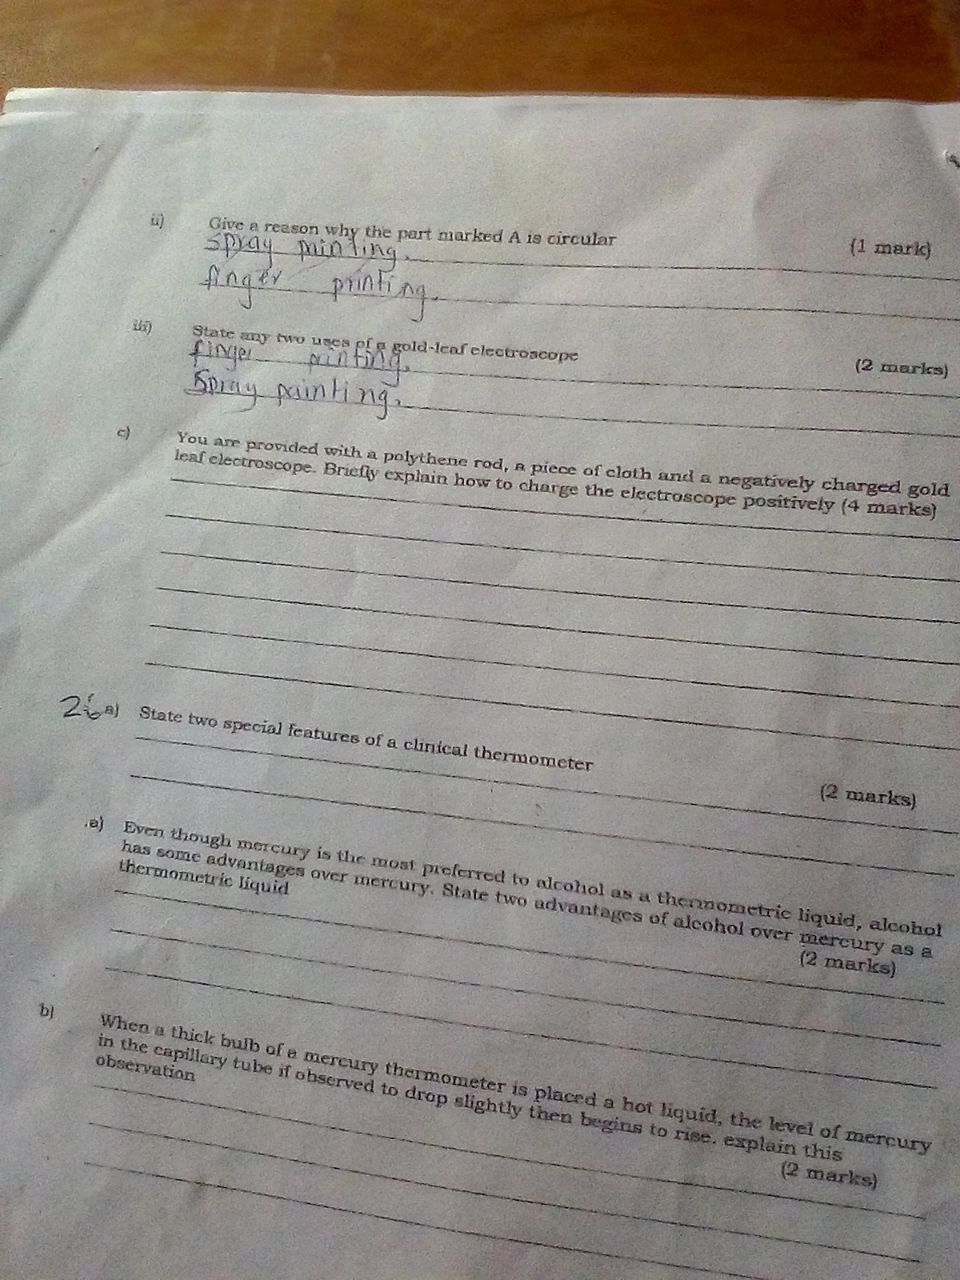 ii) Give a reason why the part marked A is circular (1 mark)
Spray painting.
finger printing.
iii) State any two uses of a gold-leaf electroscope (2 marks)
finger printing.
Spray painting.
c) You are provided with a polythene rod, a piece of cloth and a negatively charged gold
leaf electroscope. Briefly explain how to charge the electroscope positively (4 marks)
a) State two special features of a clinical thermometer (2 marks)
.a) Even though mercury is the most preferred to alcohol as a thermometric liquid, alcohol
has some advantages over mercury. State two advantages of alcohol over mercury as a
thermometric liquid (2 marks)
b) When a thick bulb of a mercury thermometer is placed a hot liquid, the level of mercury
in the capillary tube if observed to drop slightly then begins to rise. explain this
observation (2 marks)